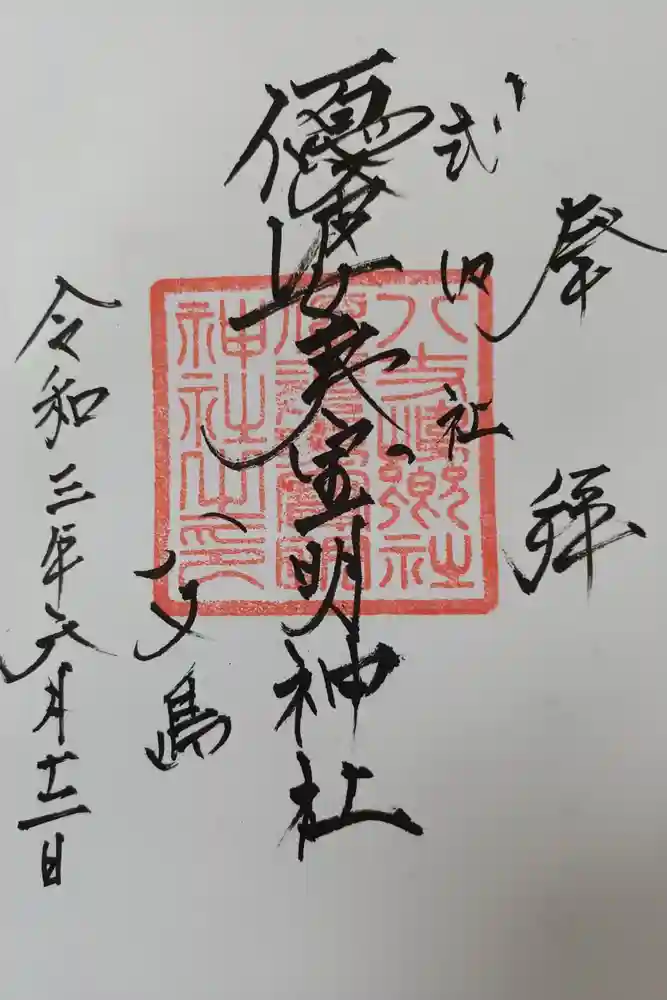 奉拝
式内社
優婆夷宝明神社
八丈島
令和三年六月十二日
八丈嶋郷社
神社之印